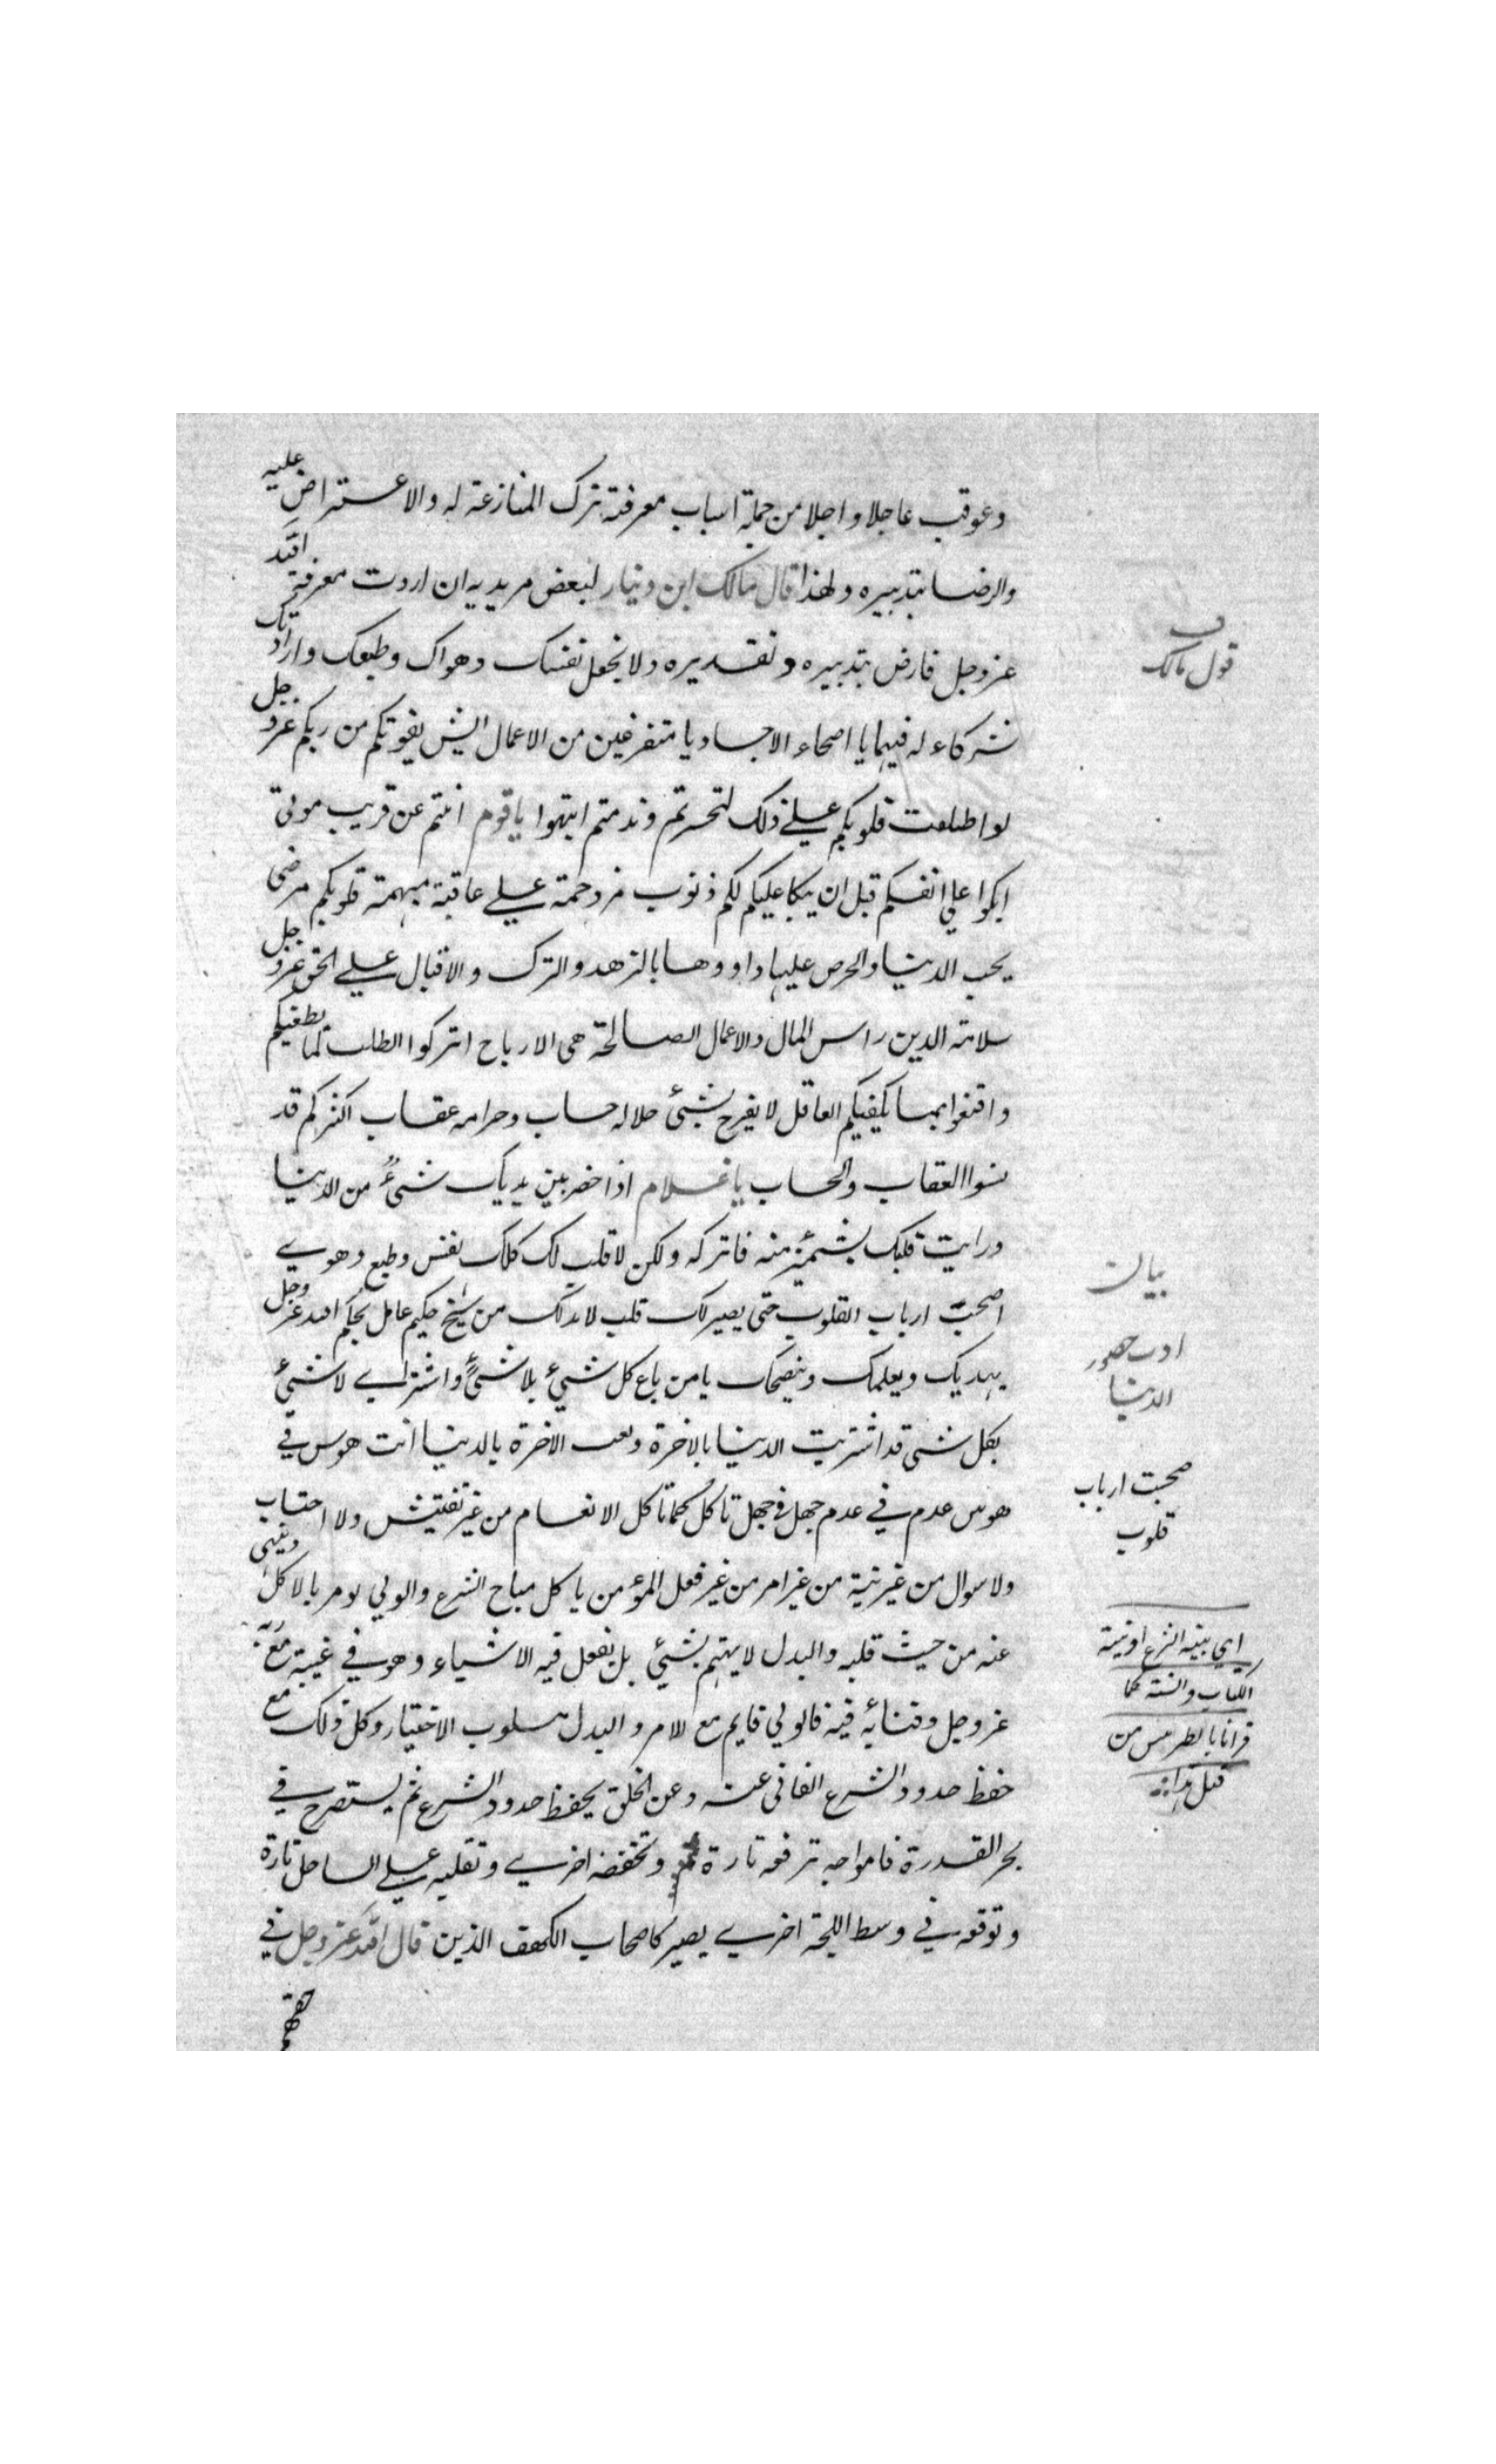 وعوقب عاجلا واجلا من جملة اسباب معرفته ترك المنازعة له والاعتراض عليه
والرضا بتدبيره ولهذا قال مالك ابن دينار لبعض مريديه ان اردت معرفة الله
عز وجل فارض بتدبيره وتقديره ولا تجعل نفسك وهواك وطبعك وارادتك
شركاء له فيهما يا اصحاء الاجساد يا متفرغين من الاعمال ايش يفوتكم من ربكم عز وجل
لو اطلعت قلوبكم على ذلك لتحسرتم وندمتم انتبهوا يا قوم انتم عن قريب موتى
ابكوا على انفسكم قبل ان يبكا عليكم لكم ذنوب مزدحمة على عاقبة مبهمة قلوبكم مرضى
بحب الدنيا والحرص عليها داووها بالزهد والترك والاقبال على الحق عز وجل
سلامة الدين راس المال والاعمال الصالحة هى الارباح اتركوا الطلب لما يطغيكم
واقنعوا بما يكفيكم العاقل لا يفرح بشئ حلاله حساب وحرامه عقاب اكثركم قد
نسوا العقاب والحساب يا غلام اذا حضر بين يديك شئ من الدنيا
ورايت قلبك يشمئز منه فاتركه ولكن لا قلب لك كلك نفس وطبع وهوى
اصحب ارباب القلوب حتى يصير لك قلب لا بد لك من شيخ حكيم عامل بحكم الله عز وجل
يهديك ويعلمك وينصحك يا من باع كل شئ بلا شئ واشترى لا شئ
بكل شئ قد اشتريت الدنيا بالاخرة وبعت الاخرة بالدنيا انت هوس في
هوس عدم في عدم جهل في جهل تاكل كما تاكل الانعام من غير تفتيش ولا احتساب
ولا سوال من غير نية من غير امر من غير فعل المؤمن ياكل مباح الشرع والولي يومر بالاكل وينهى
عنه من حيث قلبه والبدل لا يهتم بشئ بل يفعل فيه الاشياء وهو في غيبة مع ربه
عز وجل وفنائه فيه فالولي قايم مع الامر والبدل مسلوب الاختيار وكل ذلك مع
حفظ حدود الشرع الفانى عنه وعن الخلق يحفظ حدود الشرع ثم يستصرح في
بحر القدرة فامواجه ترفعه تارة وتخفضه اخرى وتقلبه على الساحل تارة
وتوقفه في وسط اللجة اخرى يصير كاصحاب الكهف الذين قال الله عز وجل في
حقهم
قول مالك
بيان
ادب حضور
الدنيا
صحبت ارباب
قلوب
اي بينه الشرع اونيته
الكتاب والسنة كما
قرانا بالطرمس من
قبل